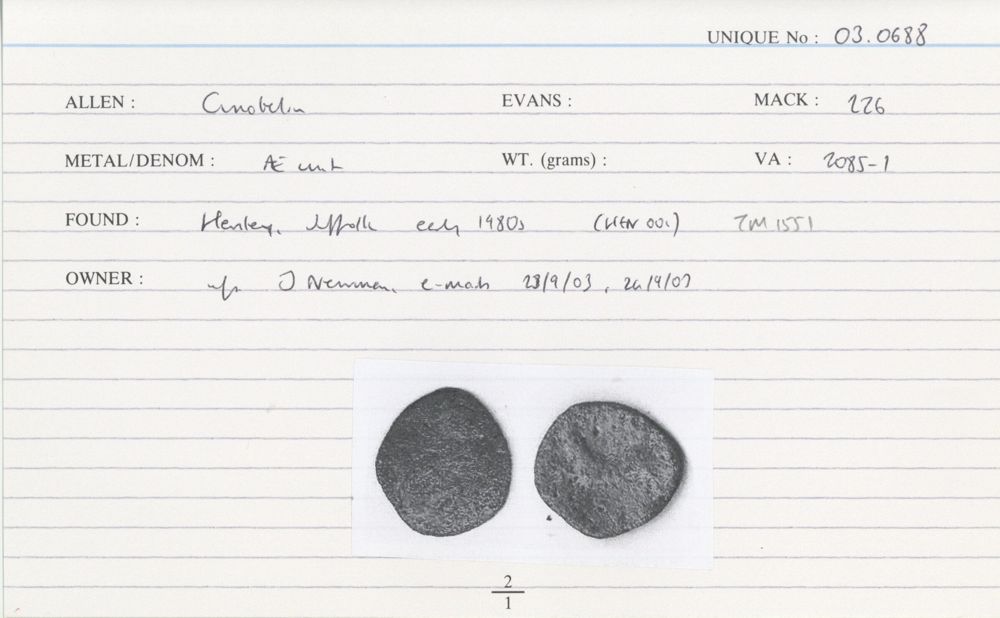 UNIQUE No : 03.0688
ALLEN : Cunobelin EVANS : MACK : 226
METAL/DENOM : Æ unit WT. (grams) : VA : 2085-1
FOUND : Henley, Suffolk early 1980s (HEN 001) TM 1551
OWNER : J Newman, e-mails 23/9/03, 24/9/03
2
1